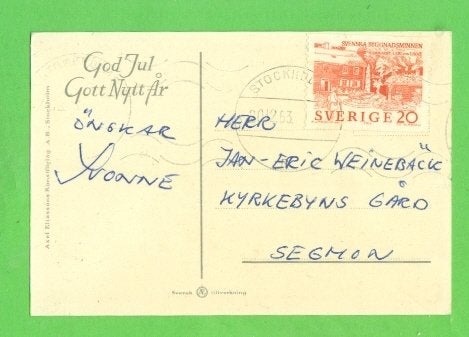 God Jul
Gott Nytt År
ÖNSKAR
YVONNE
Axel Eliassons Konstförlag A.B. Stockholm
SVENSKA BYGGNADSMINNEN
SVERIGE 20
STOCKHOLM
HERR
JAN-ERIC WEINEBÄCK
KYRKEBYNS GÅRD
SEGMON
Svensk tillverkning